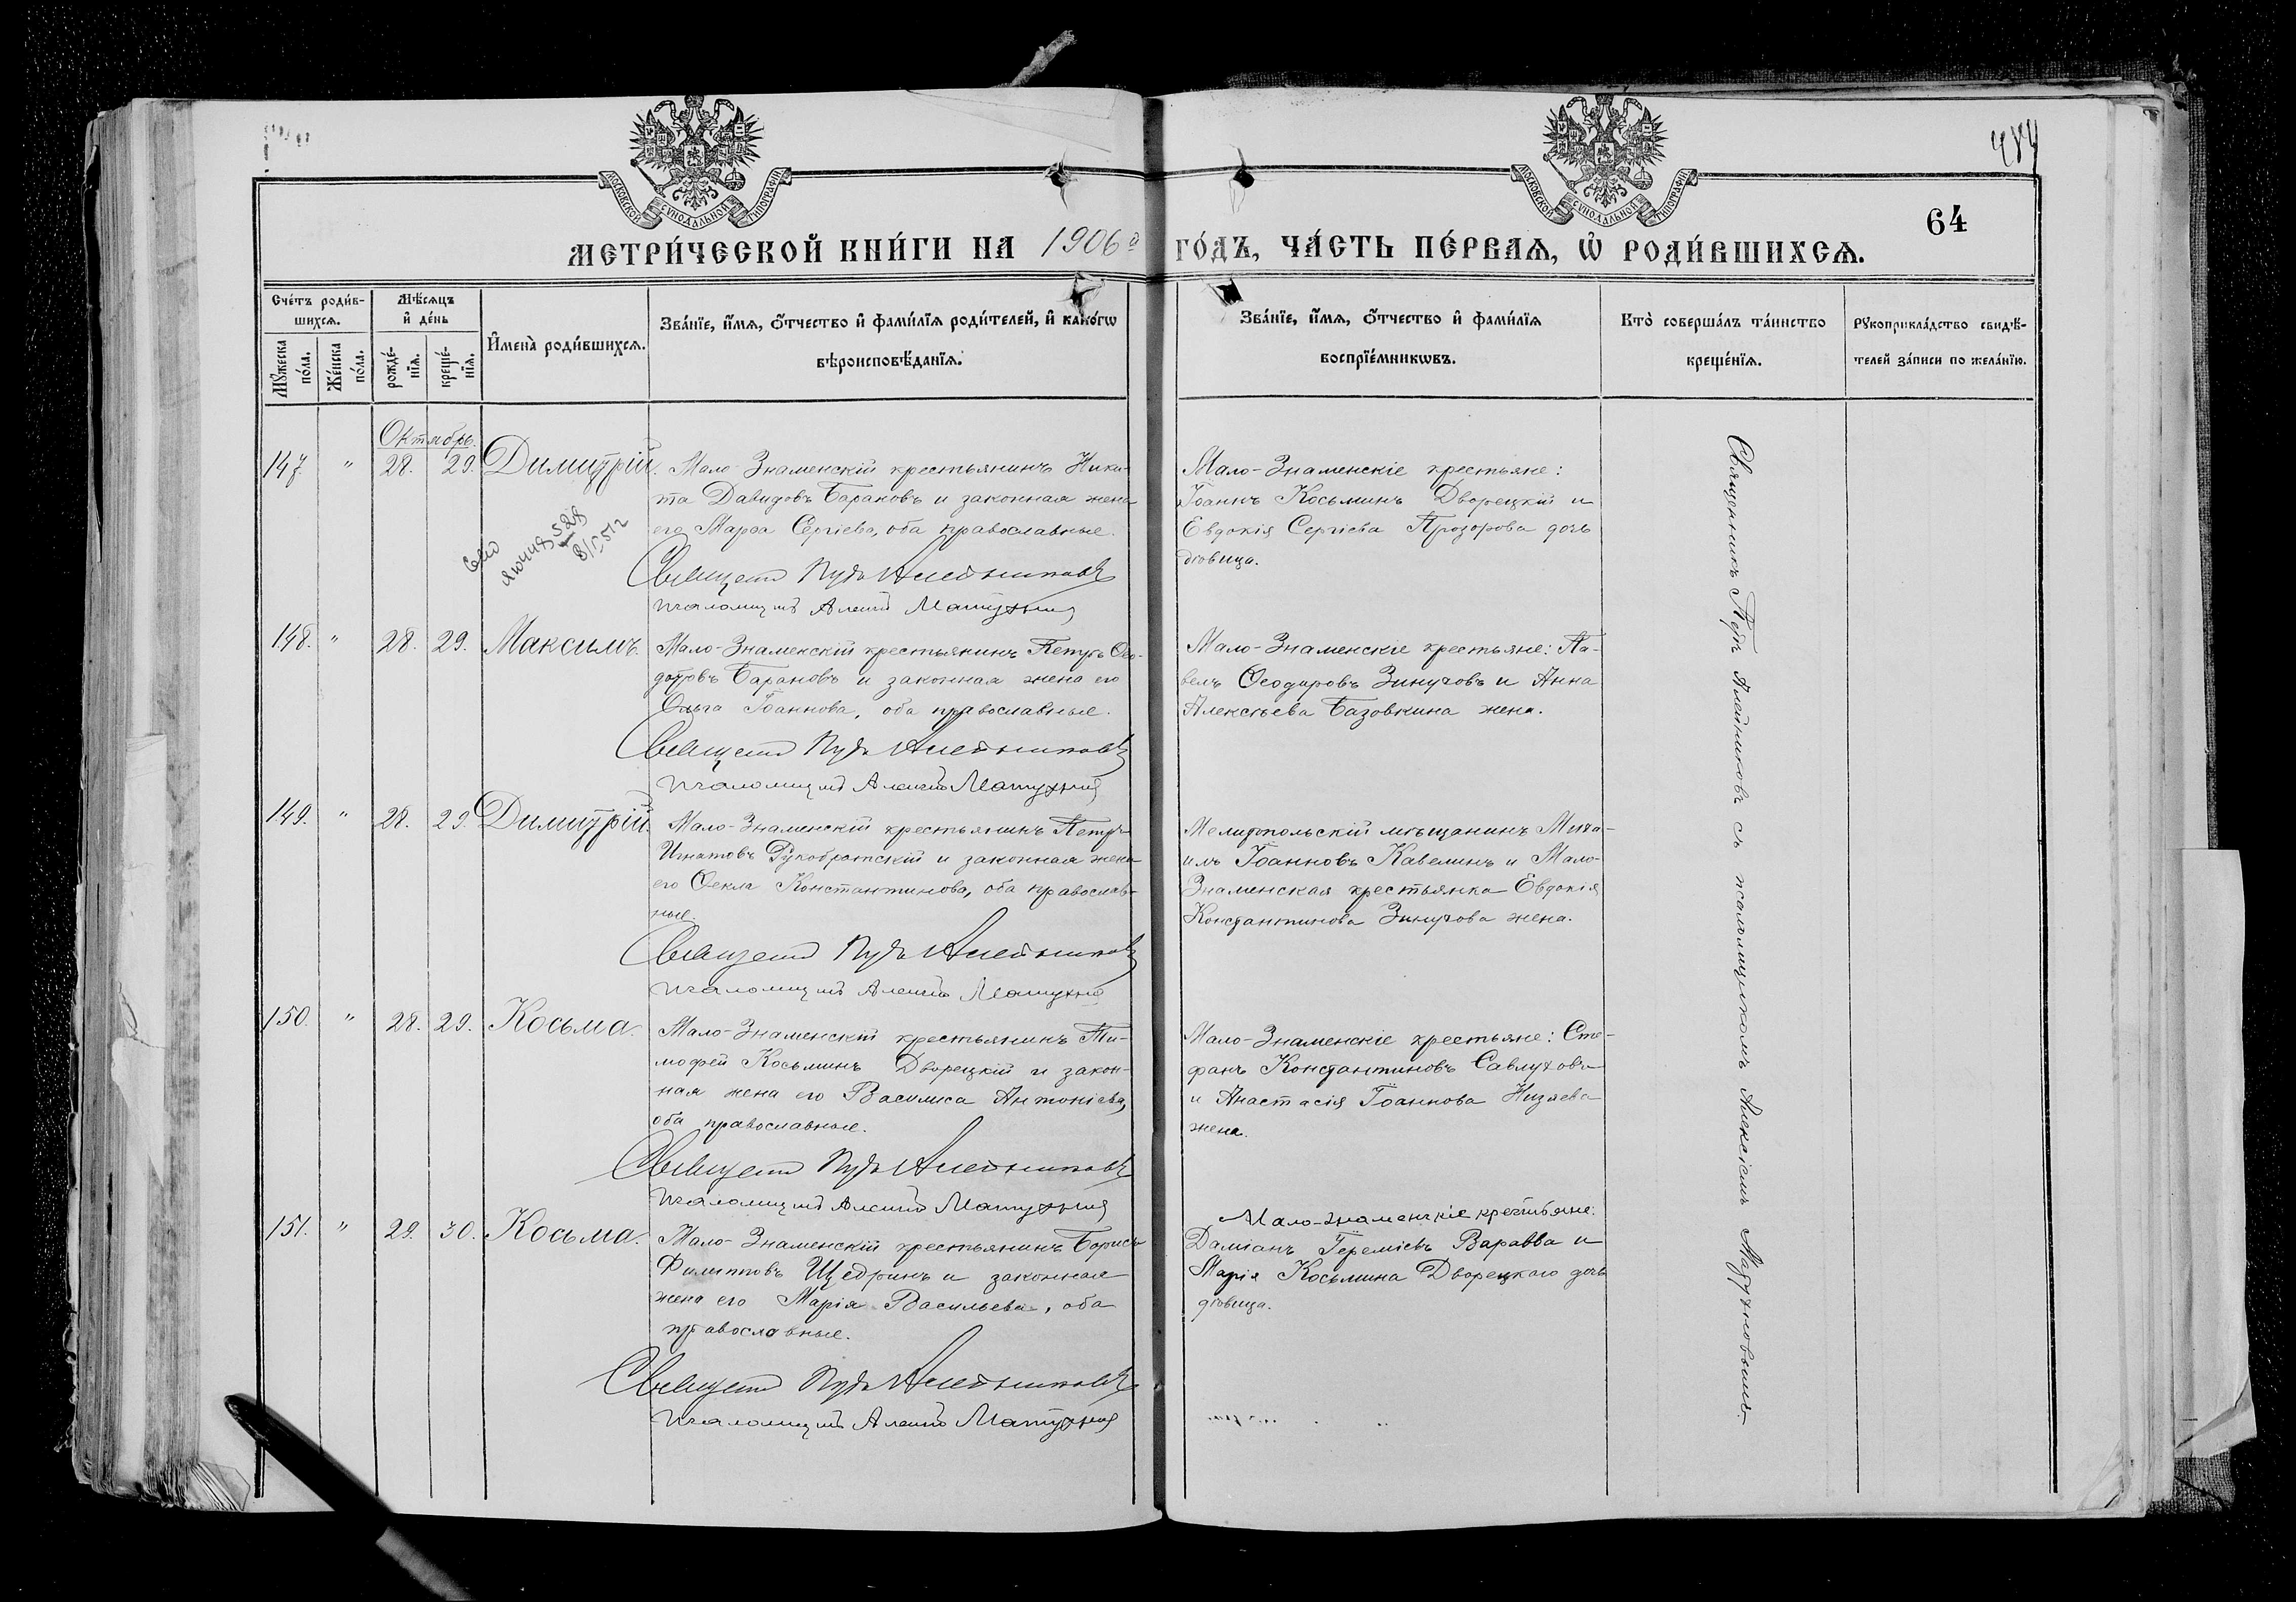 МОСКОВСКОЙ СѴНОДАЛЬНОЙ ТИПОГРАФІИ
МОСКОВСКОЙ СѴНОДАЛЬНОЙ ТИПОГРАФІИ
484
64
МЕТРИ́ЧЕСКОЙ КНИ́ГИ НА 1906й ГО́ДЪ, ЧА́СТЬ ПЕ́РВАЯ, Ѡ РОДИ́ВШИХСѦ.
Сче́тъ роди́в-
шихсѧ.
Мꙋ́жеска по́ла.
Же́нска по́ла.
Мѣ́сѧцъ
и҆ де́нь
рожде́-
нїѧ.
креще́-
нїѧ.
И҆мена̀ роди́вшихсѧ.
Зва́нїе, и҆́мѧ, ѻ҆́тчество и҆ фами́лїѧ роди́телей, и҆ како́гѡ
вѣроисповѣ́данїѧ.
Зва́нїе, и҆́мѧ, ѻ҆́тчество и҆ фами́лїѧ
воспрїе́мникѡвъ.
Кто̀ соверша́лъ та́инство
креще́нїѧ.
Рꙋкоприкла́дство свидѣ́-
телей за́писи по жела́нїю.
Октябрь.
147. " 28. 29. Димитрій.
Мало-Знаменскій крестьянинъ Ники-
та Давидовъ Барановъ и законная жена
его Марѳа Сергіева, оба православные.
Священ Пудъ Алейниковъ
псаломщикъ Алексій Матухнов
Мало-Знаменскіе крестьяне:
Іоаннъ Косьминъ Дворецкій и
Евдокія Сергіева Прозорова дочь
дѣвица.
148. " 28. 29. Максимъ.
Мало-Знаменскій крестьянинъ Петръ Ѳео-
дотовъ Барановъ и законная жена его
Ольга Іоаннова, оба православные.
Священ Пудъ Алейниковъ
псаломщикъ Алексій Матухнов
Мало-Знаменскіе крестьяне: Па-
велъ Ѳеодоровъ Зинуховъ и Анна
Алексѣева Базовкина жена.
149. " 28. 29. Димитрій.
Мало-Знаменскій крестьянинъ Петръ
Игнатовъ Духобратскій и законная жена
его Ѳекла Константинова, оба православ-
ные.
Священ Пудъ Алейниковъ
псаломщикъ Алексій Матухнов
Мелитопольскій мѣщанинъ Миха-
илъ Іоанновъ Кавелинъ и Мало-
Знаменская крестьянка Евдокія
Константинова Зинухова жена.
150. " 28. 29. Косьма.
Мало-Знаменскій крестьянинъ Ти-
моѳей Косьминъ Дворецкій и закон-
ная жена его Василиса Антоніева,
оба православные.
Священ Пудъ Алейниковъ
псаломщикъ Алексій Матухнов
Мало-Знаменскіе крестьяне: Сте-
фанъ Константиновъ Савлуховъ
и Анастасія Іоаннова Низяева
жена.
151. " 29. 30. Косьма.
Мало-Знаменскій крестьянинъ Борисъ
Филипповъ Щедринъ и законная
жена его Марія Васильева, оба
православные.
Священ Пудъ Алейниковъ
псаломщикъ Алексій Матухнов
Мало-Знаменскіе крестьяне:
Даміанъ Іереміевъ Варавва и
Марія Косьмина Дворецкаго дочь
дѣвица.
Священникъ Пудъ Алейниковъ съ псаломщикомъ Алексіемъ Матухновымъ.